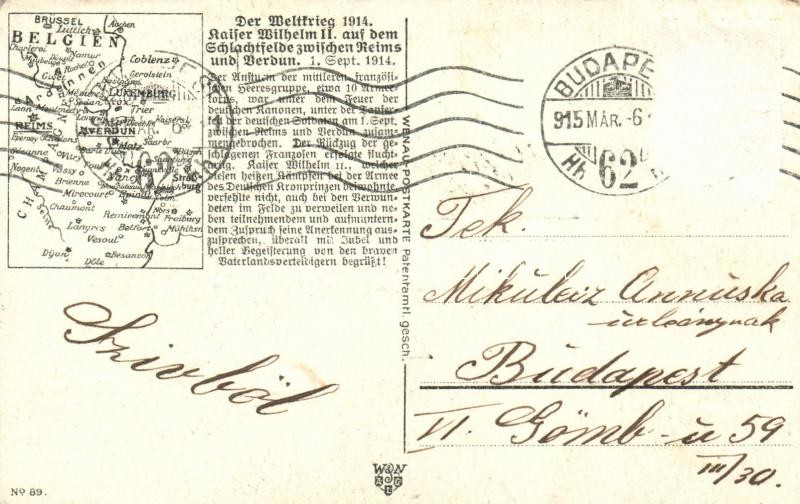 BRÜSSEL
Aachen
Lüttich
BELGIEN
Charleroi
Namur
Maubeuge
Coblenz
Gerolstein
Givet
Mézières
LUXEMBURG
Sedan
Trier
Laon
Longwy
REIMS
VERDUN
Metz
Saarbr.
Epernay
Chalons
Vitry
Toul
Nogent
Brienne
Nancy
Straßburg
Mirecourt
Epinal
Chaumont
Remiremont
Freiburg
Langres
Belfort
Mülhsn
Vesoul
Dijon
Besançon
Dôle
CHAMPAGNE
Seine
Der Weltkrieg 1914.
Kaiser Wilhelm II. auf dem
Schlachtfelde zwischen Reims
und Verdun. 1. Sept. 1914.
Der Ansturm der mittleren französi-
schen Heeresgruppe, etwa 10 Armee-
korps, war unter dem Feuer der
deutschen Kanonen, unter der Tapfer-
keit der deutschen Soldaten am 1. Sept.
zwischen Reims und Verdun zusam-
mengebrochen. Der Rückzug der ge-
schlagenen Franzosen erfolgte flucht-
artig. Kaiser Wilhelm II., welcher
diesen heißen Kämpfen bei der Armee
des Deutschen Kronprinzen beiwohnte,
verfehlte nicht, auch bei den Verwun-
deten im Felde zu verweilen und ne-
ben teilnehmendem und aufmuntern-
dem Zuspruch seine Anerkennung aus-
zusprechen, überall mit Jubel und
heller Begeisterung von den braven
Vaterlandsverteidigern begrüßt!
WENAU-POSTKARTE Patentamtl. gesch.
BUDAPE
915 MÁR. -6
62
Tek.
Mikuleiz Annuska
urleánynak
Budapest
VI. Gömb-u 59
III/30.
Szivből
WN
No 89.